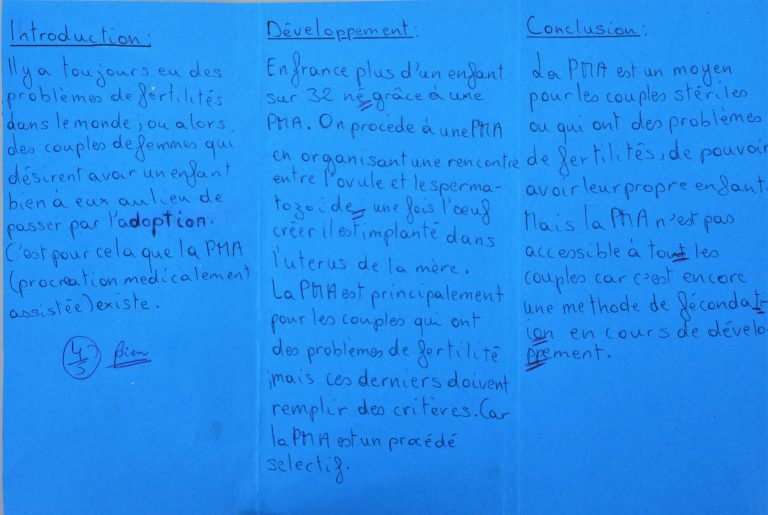 Introduction:
Il y a toujours eu des
problèmes de fértilités
dans le monde; ou alors
des couples de femmes qui
désirent avoir un enfant
bien à eux au lien de
passer par l'adoption.
C'est pour cela que la PMA
(procréation medicalement
assistée) existe.
4
5
Bien
Développement:
En france plus d'un enfant
sur 32 né grâce à une
PMA. On procède à une PMA
en organisant une rencontre
entre l'ovule et le sperma-
tozoide, une fois l'œuf
créer il est implanté dans
l'uterus de la mère.
La PMA est principalement
pour les couples qui ont
des problèmes de fertilité
;mais ces derniers doivent
remplir des critères. Car
la PMA est un procédé
selectif.
Conclusion:
La PMA est un moyen
pour les couples stériles
ou qui ont des problèmes
de fertilités, de pouvoir
avoir leur propre enfant.
Mais la PMA n'est pas
accessible à tout les
couples car c'est encore
une methode de fécondat-
ion en cours de dévelo-
ppement.